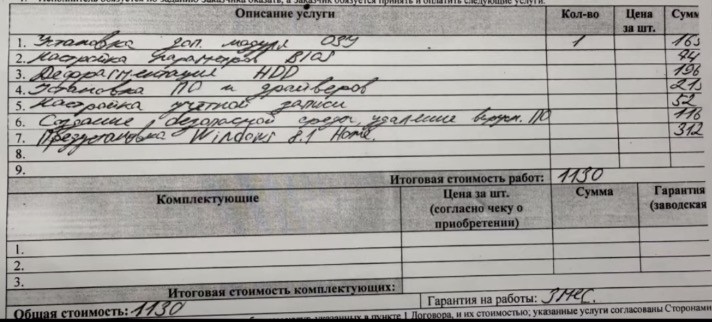 1. Исполнитель обязуется по заданию Заказчика оказать, а Заказчик обязуется принять и оплатить следующие услуги:
Описание услуги Кол-во Цена за шт. Сумм
1. Установка доп. модуля ОЗУ 1 165
2. Настройка параметров BIOS 74
3. Дефрагментация HDD 196
4. Установка ПО и драйверов 215
5. Настройка учетной записи 52
6. Создание безопасной среды, удаление вирусн. ПО 116
7. Предустановка Windows 8.1 Home. 312
8.
9.
Итоговая стоимость работ: 1130
Комплектующие Цена за шт. (согласно чеку о приобретении) Сумма Гарантия (заводская
1.
2.
3.
Итоговая стоимость комплектующих:
Общая стоимость: 1130 Гарантия на работы: 3 мес.
указанных в пункте 1 Договора, и их стоимостью; указанные услуги согласованы Сторонами